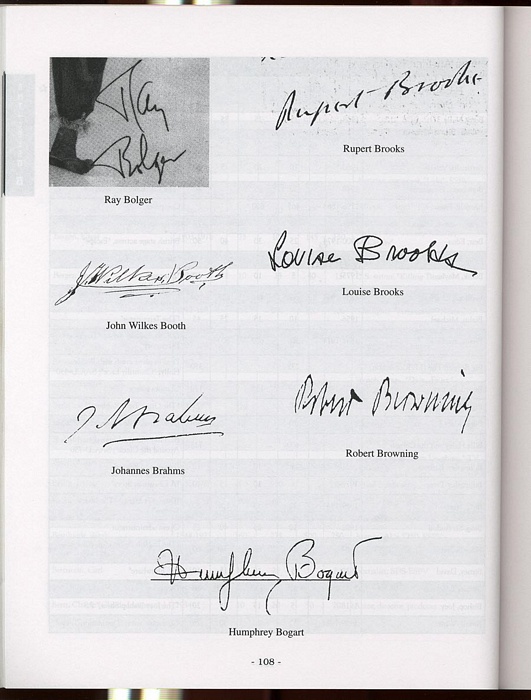 Ray
Bolger
Ray Bolger
Rupert Brooke
Rupert Brooks
J. Wilkes Booth
John Wilkes Booth
Louise Brooks
Louise Brooks
J Brahms
Johannes Brahms
Robert Browning
Robert Browning
Humphrey Bogart
Humphrey Bogart
- 108 -